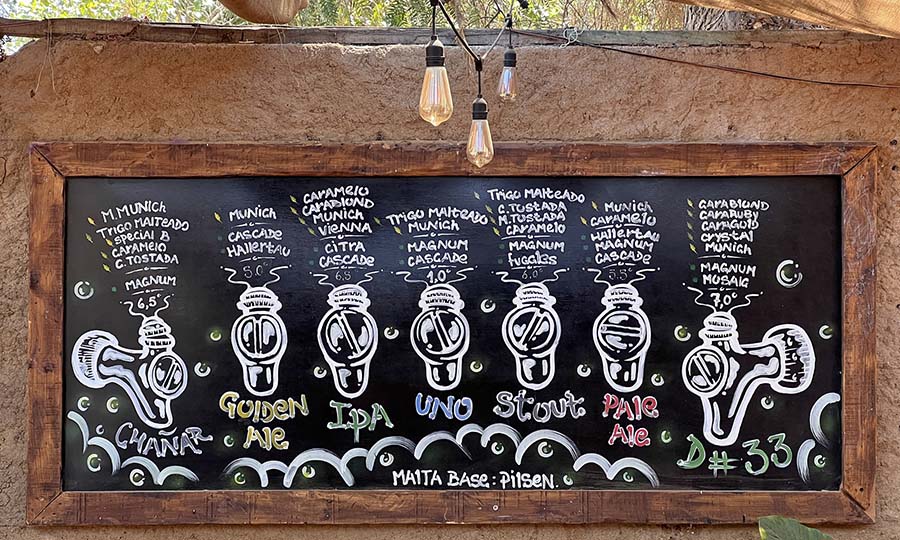 M. MUNICH
TRIGO MALTEADO
SPECIAL B
CARAMELO
C. TOSTADA
MAGNUM
6,5°
CHAÑAR
MUNICH
CASCADE
HALLERTAU
5.0°
GOLDEN
ALE
CARAMELO
CARABLOND
MUNICH
VIENNA
CITRA
CASCADE
6.5
IPA
TRIGO MALTEADO
MUNICH
MAGNUM
CASCADE
1.0°
UNO
TRIGO MALTEADO
C. TOSTADA
M. TOSTADA
CARAMELO
MAGNUM
FUGGLES
6.0°
STOUT
MUNICH
CARAMELO
HALLERTAU
MAGNUM
CASCADE
5.5°
PALE
ALE
CARABLOND
CARARUBY
CARAGOLD
CRYSTAL
MUNICH
MAGNUM
MOSAIG
7.0°
D#33
MALTA BASE: PILSEN.